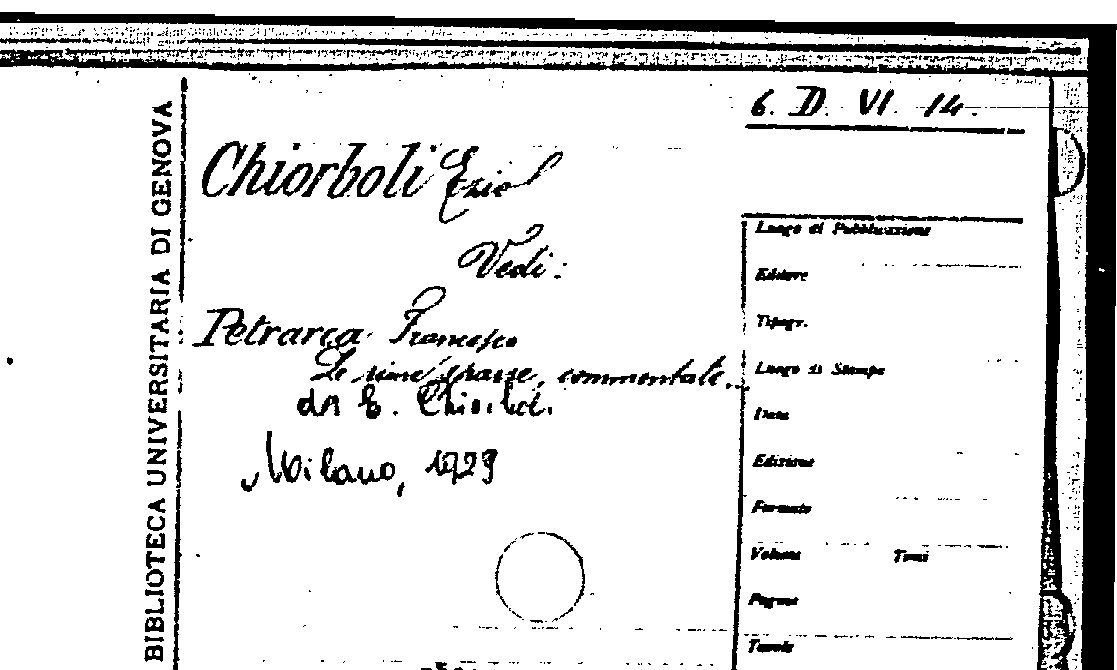 BIBLIOTECA UNIVERSITARIA DI GENOVA
6. D. VI. 14.
Chiorboli Ezio
Vedi:
Petrarca Francesco
Le rime sparse, commentate...
da E. Chiorboli.
Milano, 1929
Luogo di Pubblicazione
Editore
Tipogr.
Luogo di Stampa
Data
Edizione
Formato
Volumi Tomi
Pagine
Tavole